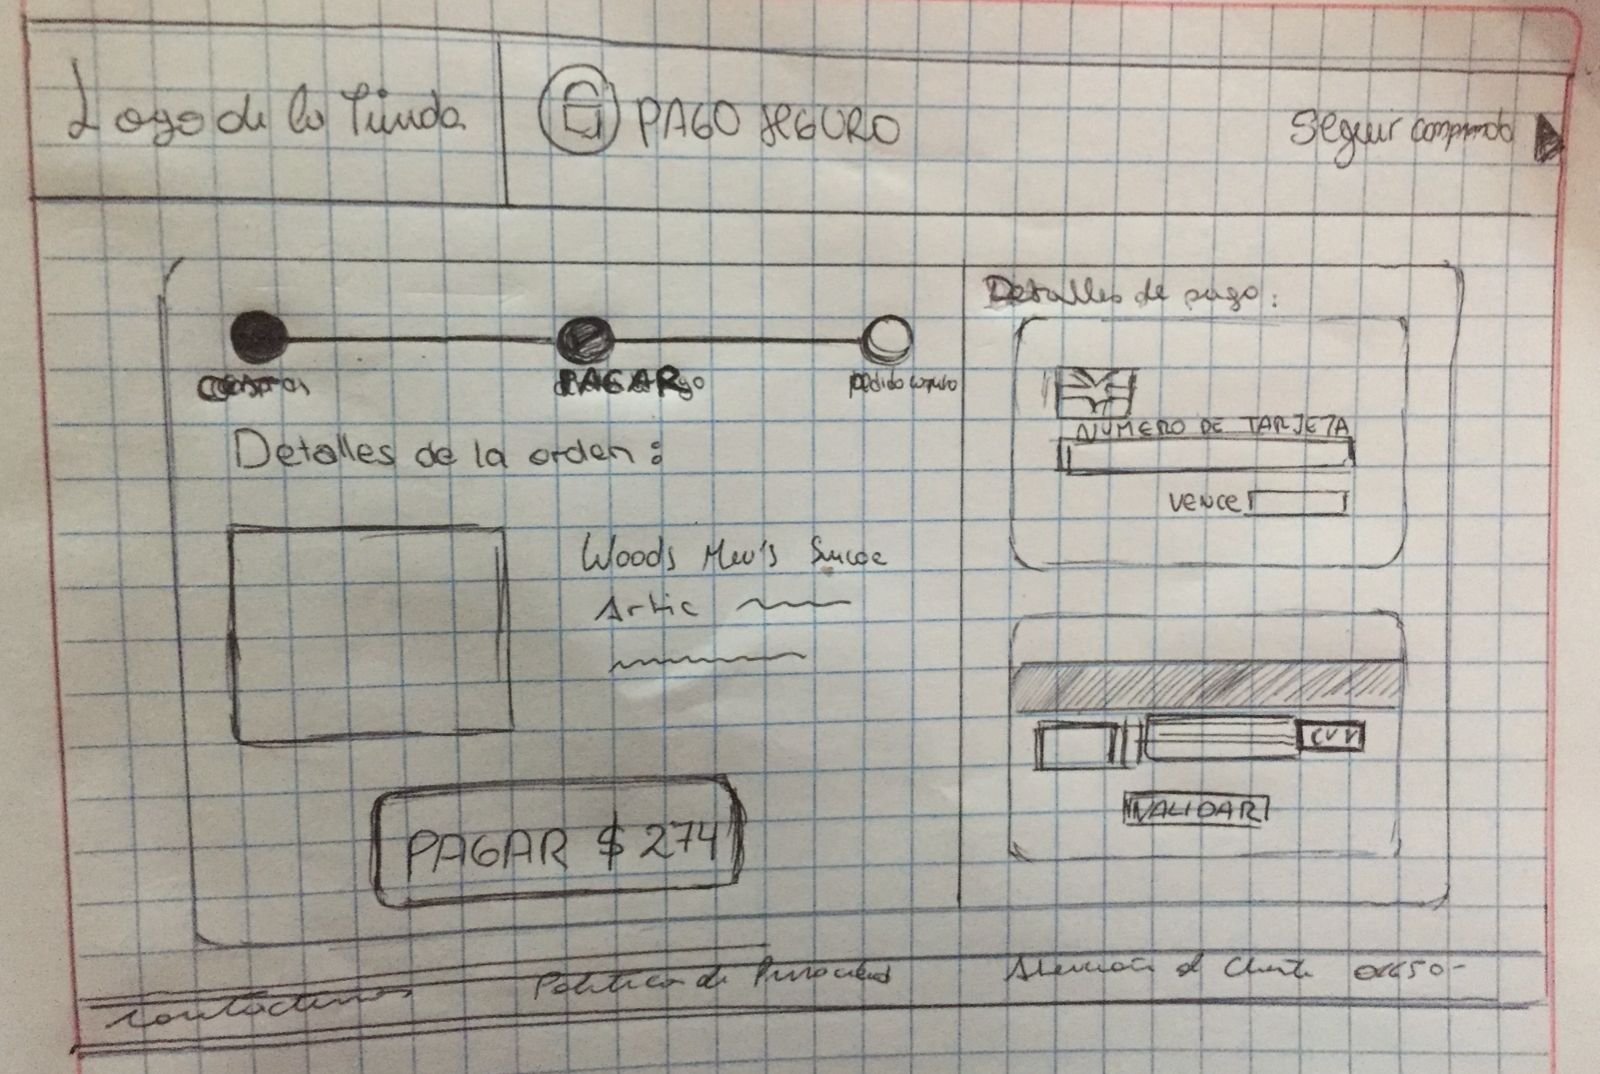 Logo de la Tienda
PAGO SEGURO
Seguir comprando
PAGAR
Detalles de la orden:
Woods Men's
Artic
PAGAR $ 274
Detalles de pago:
NUMERO DE TARJETA
VENCE
CVV
VALIDAR
Contactenos
Politica de Privacidad
Atención al Cliente